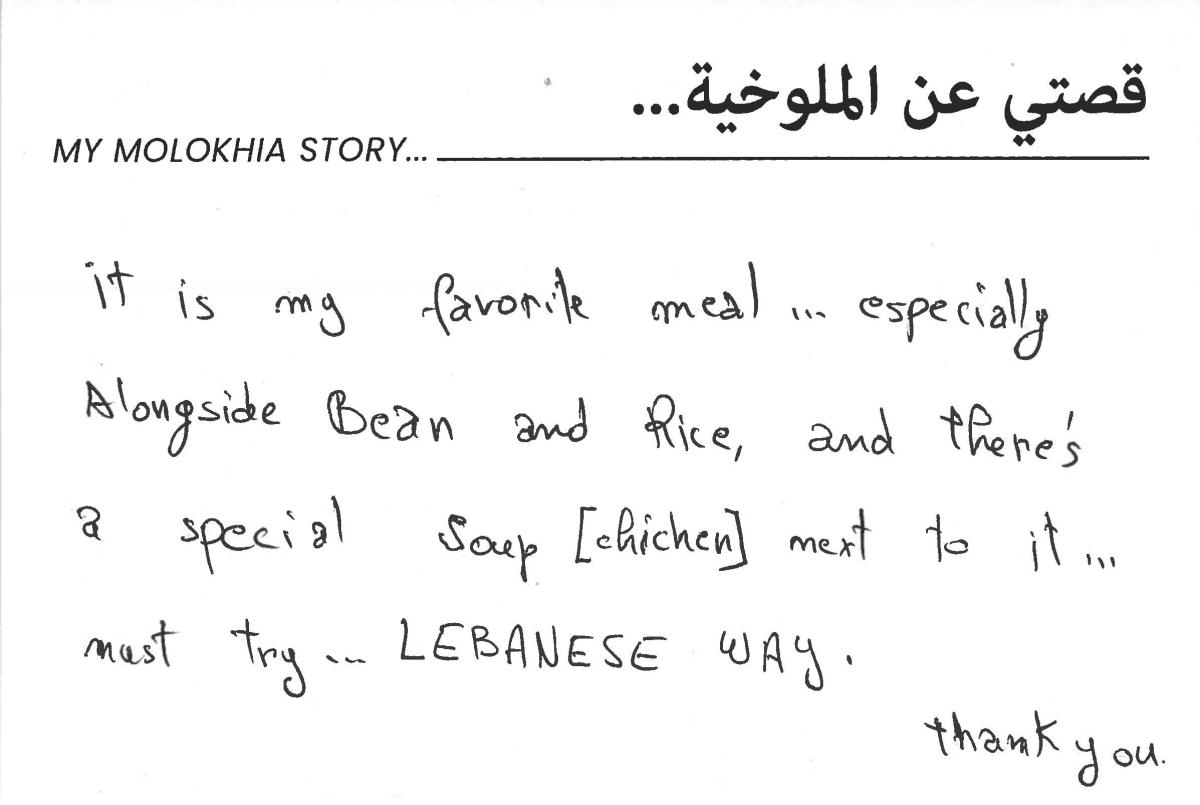 قصتي عن الملوخية...
MY MOLOKHIA STORY...
it is my favorite meal ... especially
Alongside Bean and Rice, and there's
a special Soup [chicken] next to it ...
must try ... LEBANESE WAY.
thank you.